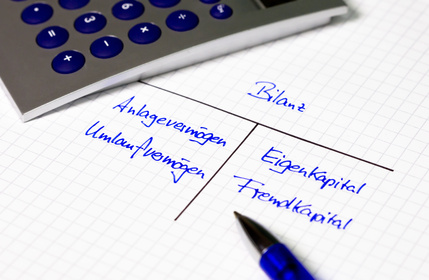 Bilanz
Anlagevermögen
Umlaufvermögen
Eigenkapital
Fremdkapital